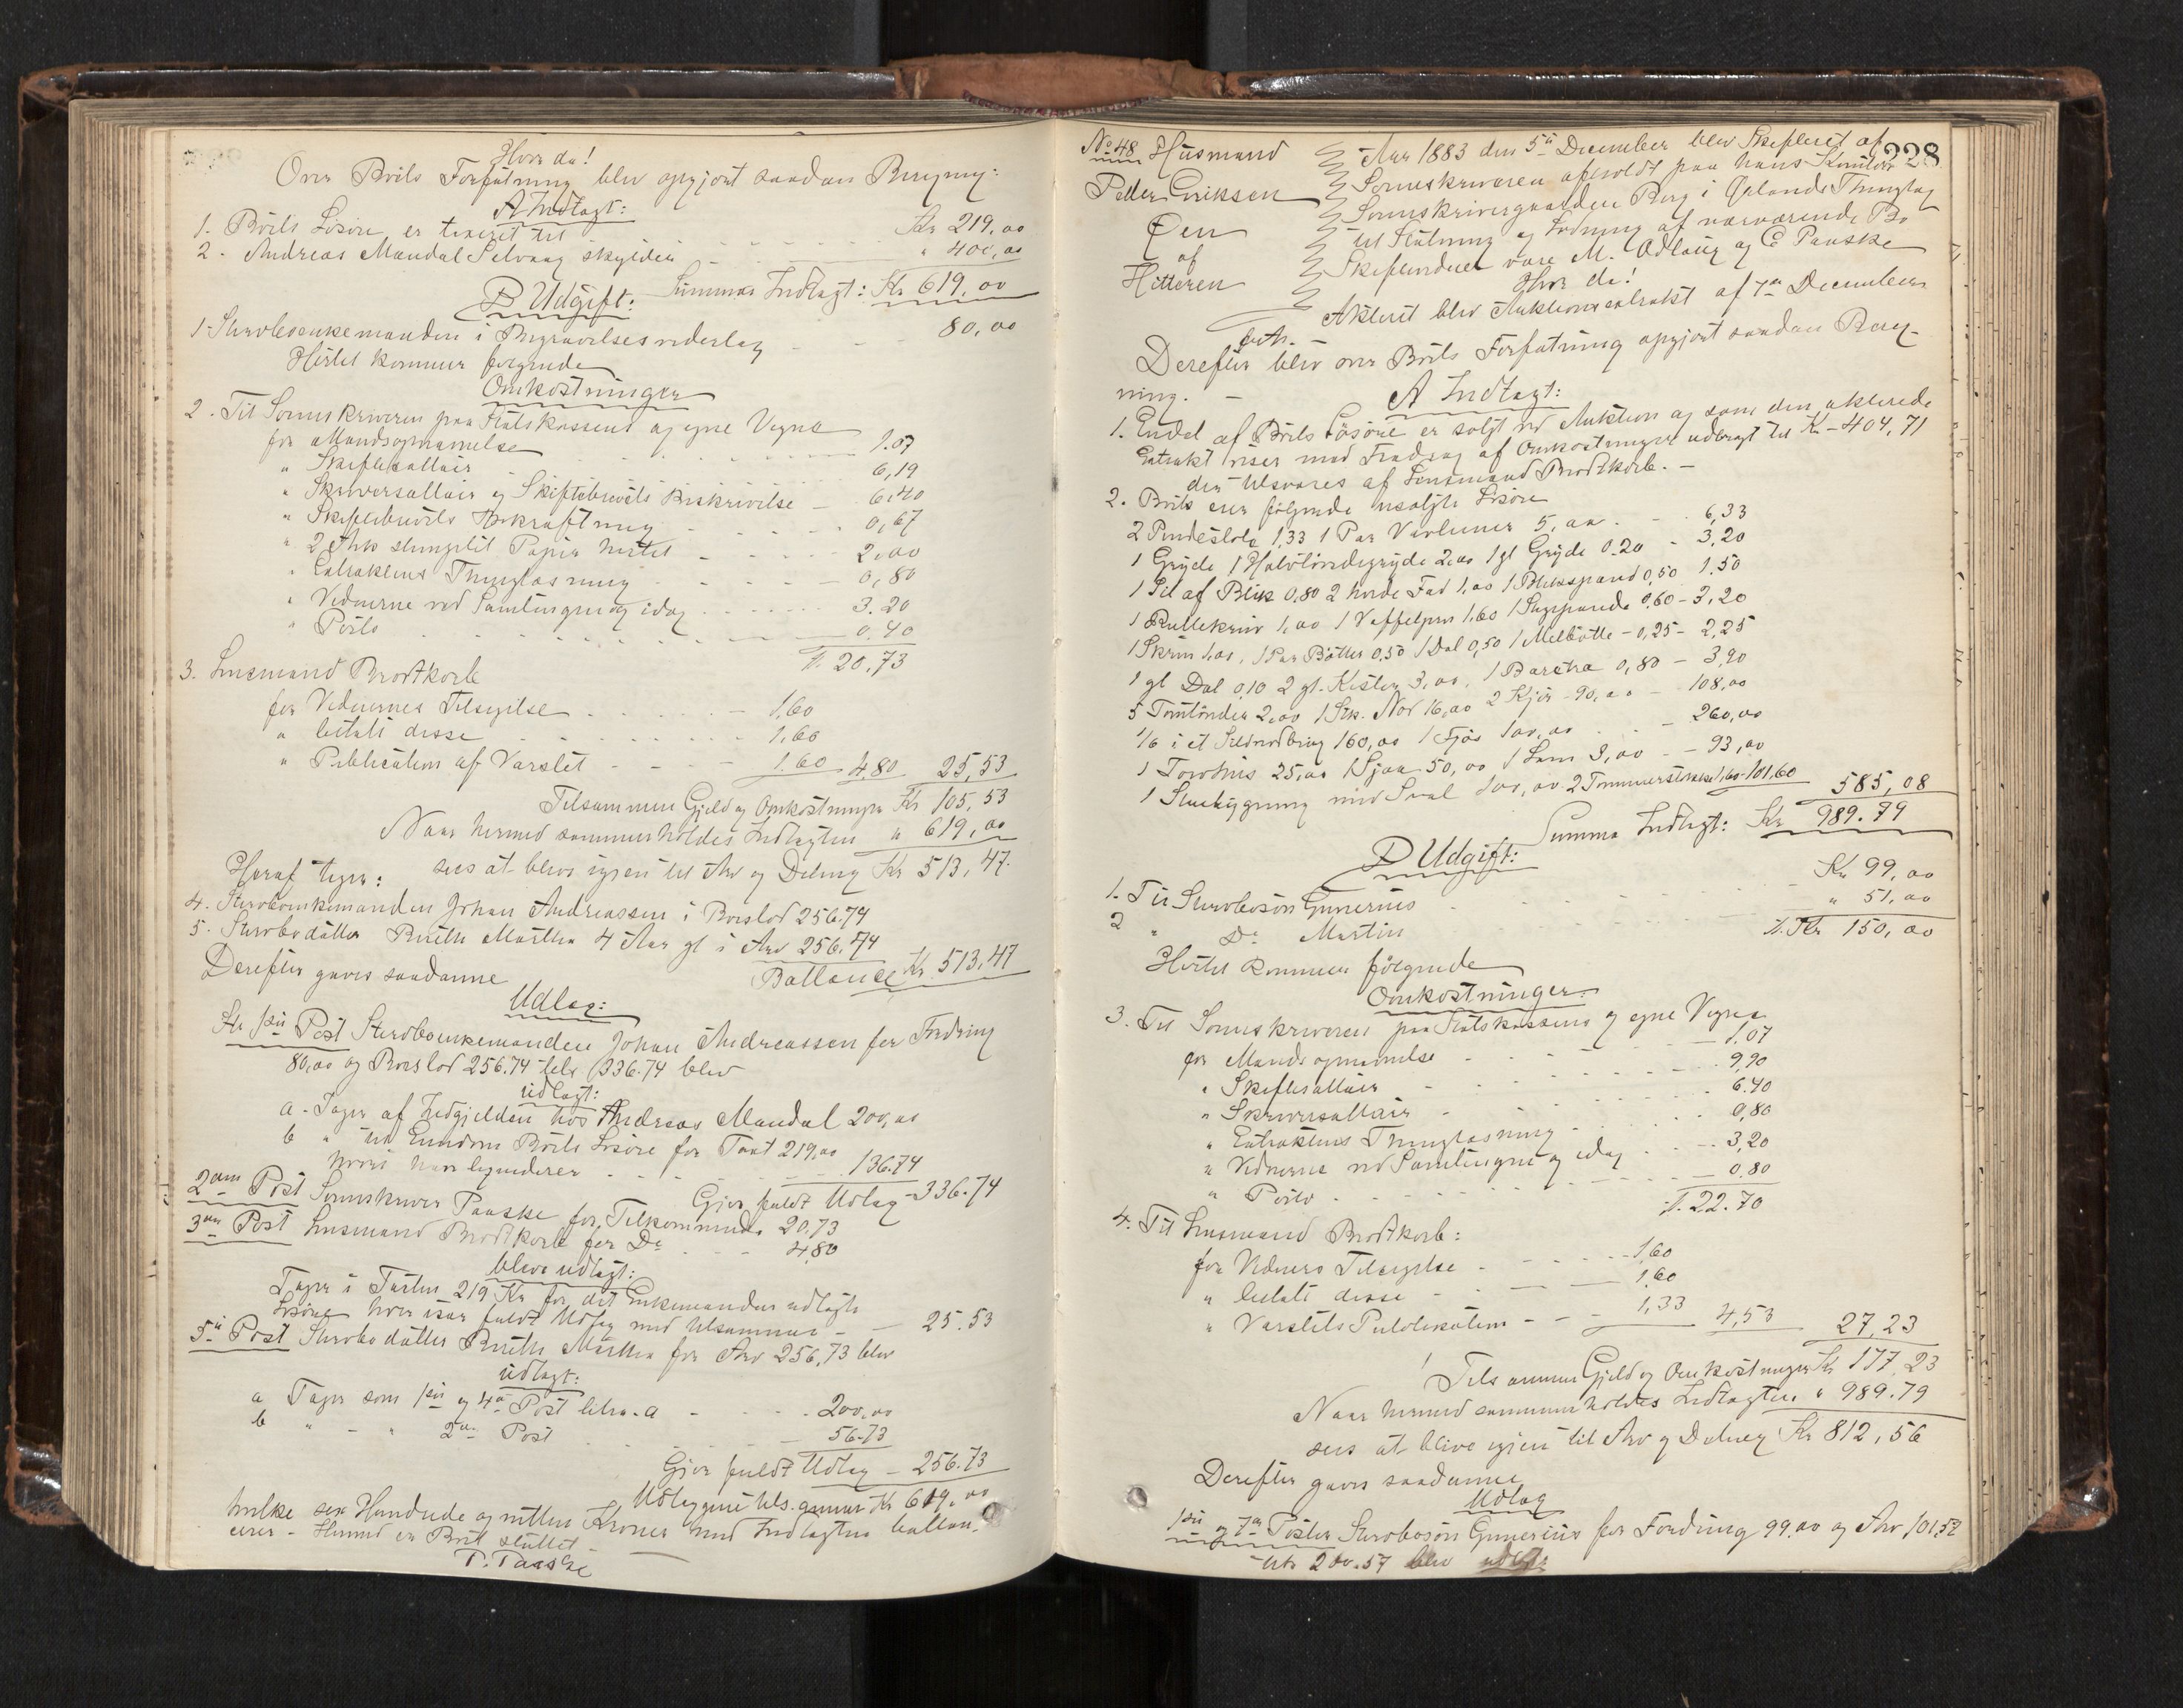 Hvor da!
Over Boets Forfatning blev opgjort saadan Beregning:
A Indtægt:
1. Boets Løsøre er taxeret til Kr 219,00
2. Andreas Mandal Selvaag skylder " 400,00
Summa Indtægt: Kr 619,00
B Udgift:
1 Stervboenkemanden i Begravelsesvederlag 80,00
Hertil kommer følgende
Omkostninger
2. Til Sorenskriveren paa Statskassens og egne Vegne
for Mandsopnævnelse 1.07
" Skiftesallair 6,19
" Skriversallair og Skiftebrevets Beskrivelse 6,40
" Skiftebrevets Bekræftning 0,67
" 2 Ark stemplet Papir hertil 2,00
" Extraktens Thinglæsning 0,80
" Vidnerne ved Samlingen og idag 3.20
" Porto 0.40
T. 20.73
3. Lensmand Brodtkorb
for Vidnernes Tilsigelse 1,60
" betalt disse 1,60
" Publication af Varslet 1.60 4,80 25,53
Tilsammen Gjeld og Omkostninger Kr 105,53
Naar hermed sammenholdes Indtægten " 619,00
sees at blive igjen til Arv og Deling Kr 513,47.
Heraf tager:
4. Stervboenkemanden Johan Andreassen i Boeslod 256.74
5. Stervbodatter Berith Martha 4 Aar gl i Arv 256.74
Ballance Kr 513,47
Derefter gaves saadanne
Udlæg:
For 1ste Post Stervboenkemanden Johan Andreassen for Fordring
80,00 og Boeslod 256.74 tils. 336.74 blev
udlagt:
a. Tager af Indgjelden hos Andreas Mandal 200,00
b " til Eiendom Boets Løsøre for Taxt 219,00
hvori han liqviderer 136.74
Gjør fuldt Udlæg 336.74
2den Post Sorenskriver Paaske for Tilkommende 20.73
3die Post Lensmand Brodtkorb for Do 4,80
blev udlagt:
Tager i Taxten 219 Kr for det Enkemanden udlagte
Løsøre hver især fuldt Udlæg med tilsammen 25.53
5te Post Stervbodatter Berith Martha for Arv 256,73 blev
udlagt:
a Tager som 1ste og 4de Post litra a 200,00
b " - " 2den Post 56.73
Gjør fuldt Udlæg 256.73
Udlæggene tils. ammen Kr 619,00
hvilke sex Hundrede og nitten Kroner med Indtægten ballan-
cerer - Hermed er Boet sluttet -
P. Paaske
228
No 48 Husmand
Petter Eriksen
Øen
af
Hitteren
Aar 1883 den 5te December blev Skifteret af
Sorenskriveren afholdt paa hans Kontor
Sorenskrivergaarden Borg i Ørlands Thinglag
til Slutning og Lodning af nærværende Bo
Skiftevidner vare M. Odlaug og E Paaske
Hvor da!
Akteret blev Auktionsextrakt af 7de December
Derefter blev over Boets Forfatning opgjort saadan Bereg-
ning. -
A Indtægt:
1. Endel af Boets Løsøre er solgt ved Auktion og som den akterede
Extrakt viser med Fradrag af Omkostninger udbragt til Kr 404,71
der tilsvares af Lensmand Brodtkorb. -
2. Boets eier følgende usolgte Løsøre
2 Pindestole 1,33 1 Par Vævlenner 5,00 6,33
1 Gryde 1 Halvtøndegryde 2,00 1 gl Gryde 0.20 3,20
1 Sil af Blik 0,80 2 hvide Fad 1,00 1 Blikspand 0,50 1.50
1 Rullekniv 1,00 1 Vaffeljern 1,60 1 Stegpande 0,60 3,20
1 Skrin 1,00, 1 Par Bøtter 0.50 1 Dal 0,50 1 Melbøtte 0,25 2,25
1 gl Dal 0,10 2 gl. Kister 3,00, 1 Barstra 0,80 3,90
5 Tomtønder 2,00 1 Stk. Not 16,00 2 Kjør 90,00 108,00
1/6 i et Sildnotbrug 160,00 1 Fjøs 100,00 260,00
1 Torvhus 25,00 1 Sjaa 50,00 1 Lam 3,00 93,00
1 Stuebygning med Sval 100,00 2 Tømmerstokke 1,60 101,60 585,08
Summa Indtægt: Kr 989.79
B Udgift:
1. Til Stervbosøn Gunerius Kr 99,00
2 " Do Martin " 51,00
T. Kr 150,00
Hertil kommer følgende
Omkostninger:
3. Til Sorenskriveren paa Statskassens og egne Vegne
for Mandsopnævnelse 1.07
" Skiftesallair 9,90
" Skriversallair 6.40
" Extraktens Thinglæsning 0,80
" Vidnerne ved Samlingen og idag 3,20
" Porto 0.80
T. 22.70
4. Til Lensmand Brodtkorb:
for Vidners Tilsigelse 1,60
" betalt disse 1,60
" Varslets Publikation 1,33 4,53 27,23
Tilsammen Gjeld og Omkostninger Kr 177,23
Naar hermed sammenholdes Indtægten " 989.79
sees at blive igjen til Arv og Deling Kr 812,56
Derefter gaves saadanne
Udlæg
1ste og 7de Poster Stervbosøn Gunerius for Fordring 99,00 og Arv 101,57
tils 200.57 blev udlagt: